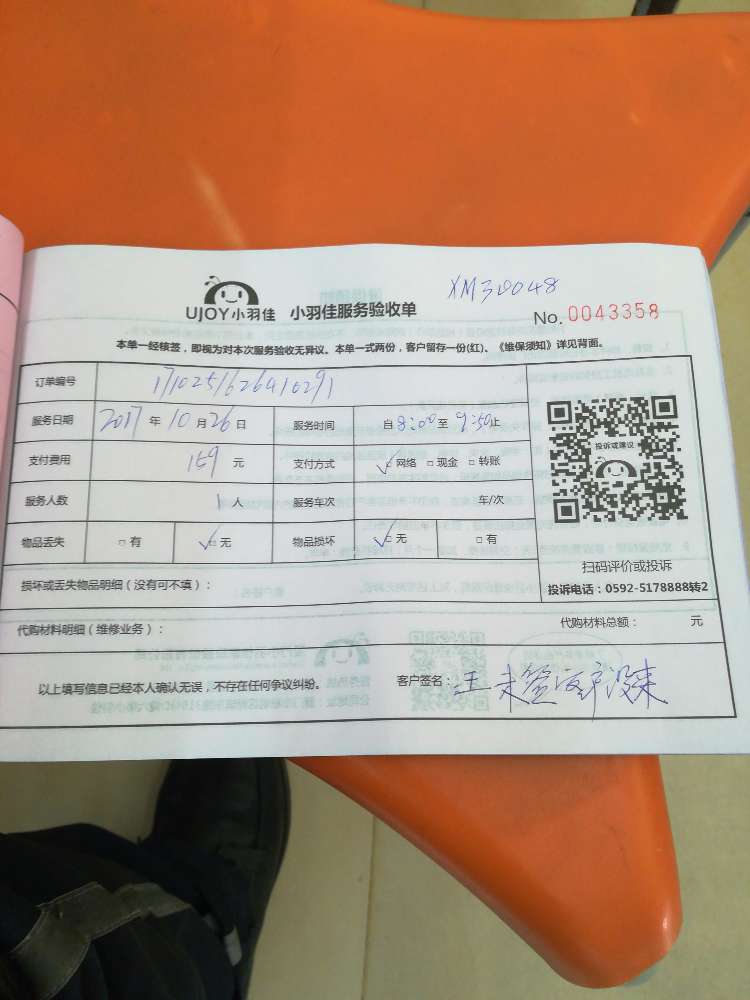 XM30048
UJOY小羽佳 小羽佳服务验收单
No. 0043358
本单一经核签，即视为对本次服务验收无异议。本单一式两份，客户留存一份(红)、《维保须知》详见背面。
订单编号 1710251626410291
服务日期 2017 年 10 月 26 日 服务时间 自 8:00 至 9:50 止
支付费用 159 元 支付方式 ✓□ 网络 □ 现金 □ 转账
服务人数 1 人 服务车次 车/次
物品丢失 □ 有 ✓□ 无 物品损坏 ✓□ 无 □ 有
投诉或建议
扫码评价或投诉
投诉电话：0592-5178888转2
损坏或丢失物品明细（没有可不填）：
代购材料明细（维修业务）： 代购材料总额： 元
以上填写信息已经本人确认无误，不存在任何争议纠纷。 客户签名：王 未签 客户没来